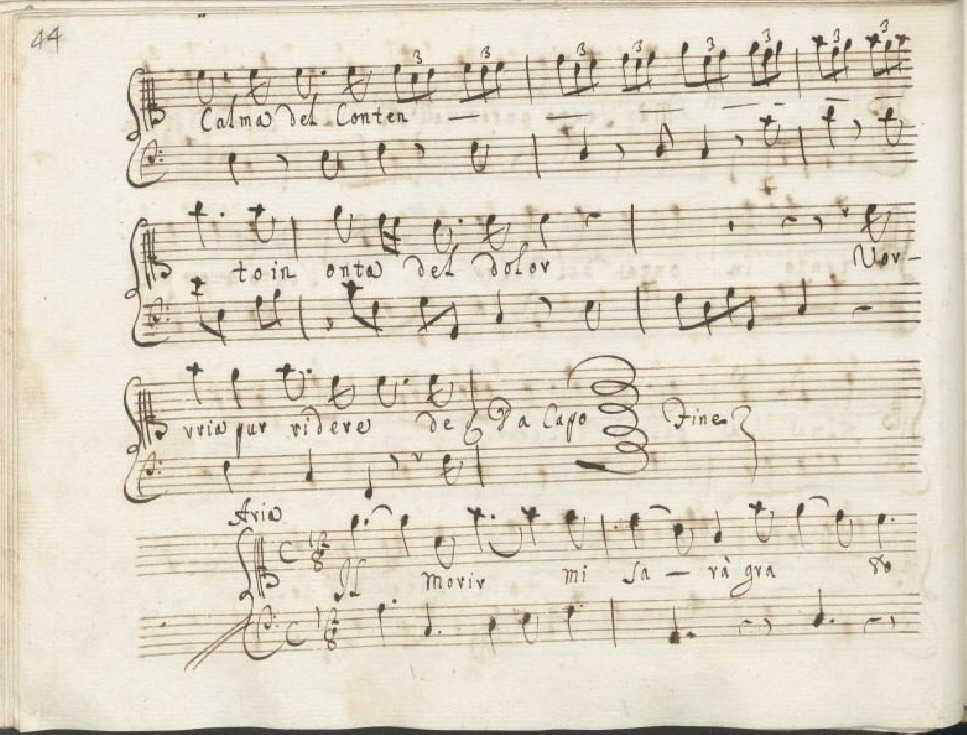 44
3 3 3 3 3 3 3 3
Calma del Conten
to in onta del dolor Vor-
vria pur ridere de Da Capo Fine
Aria
C 12/8 Il Morir mi sa – rà gra do
C 12/8